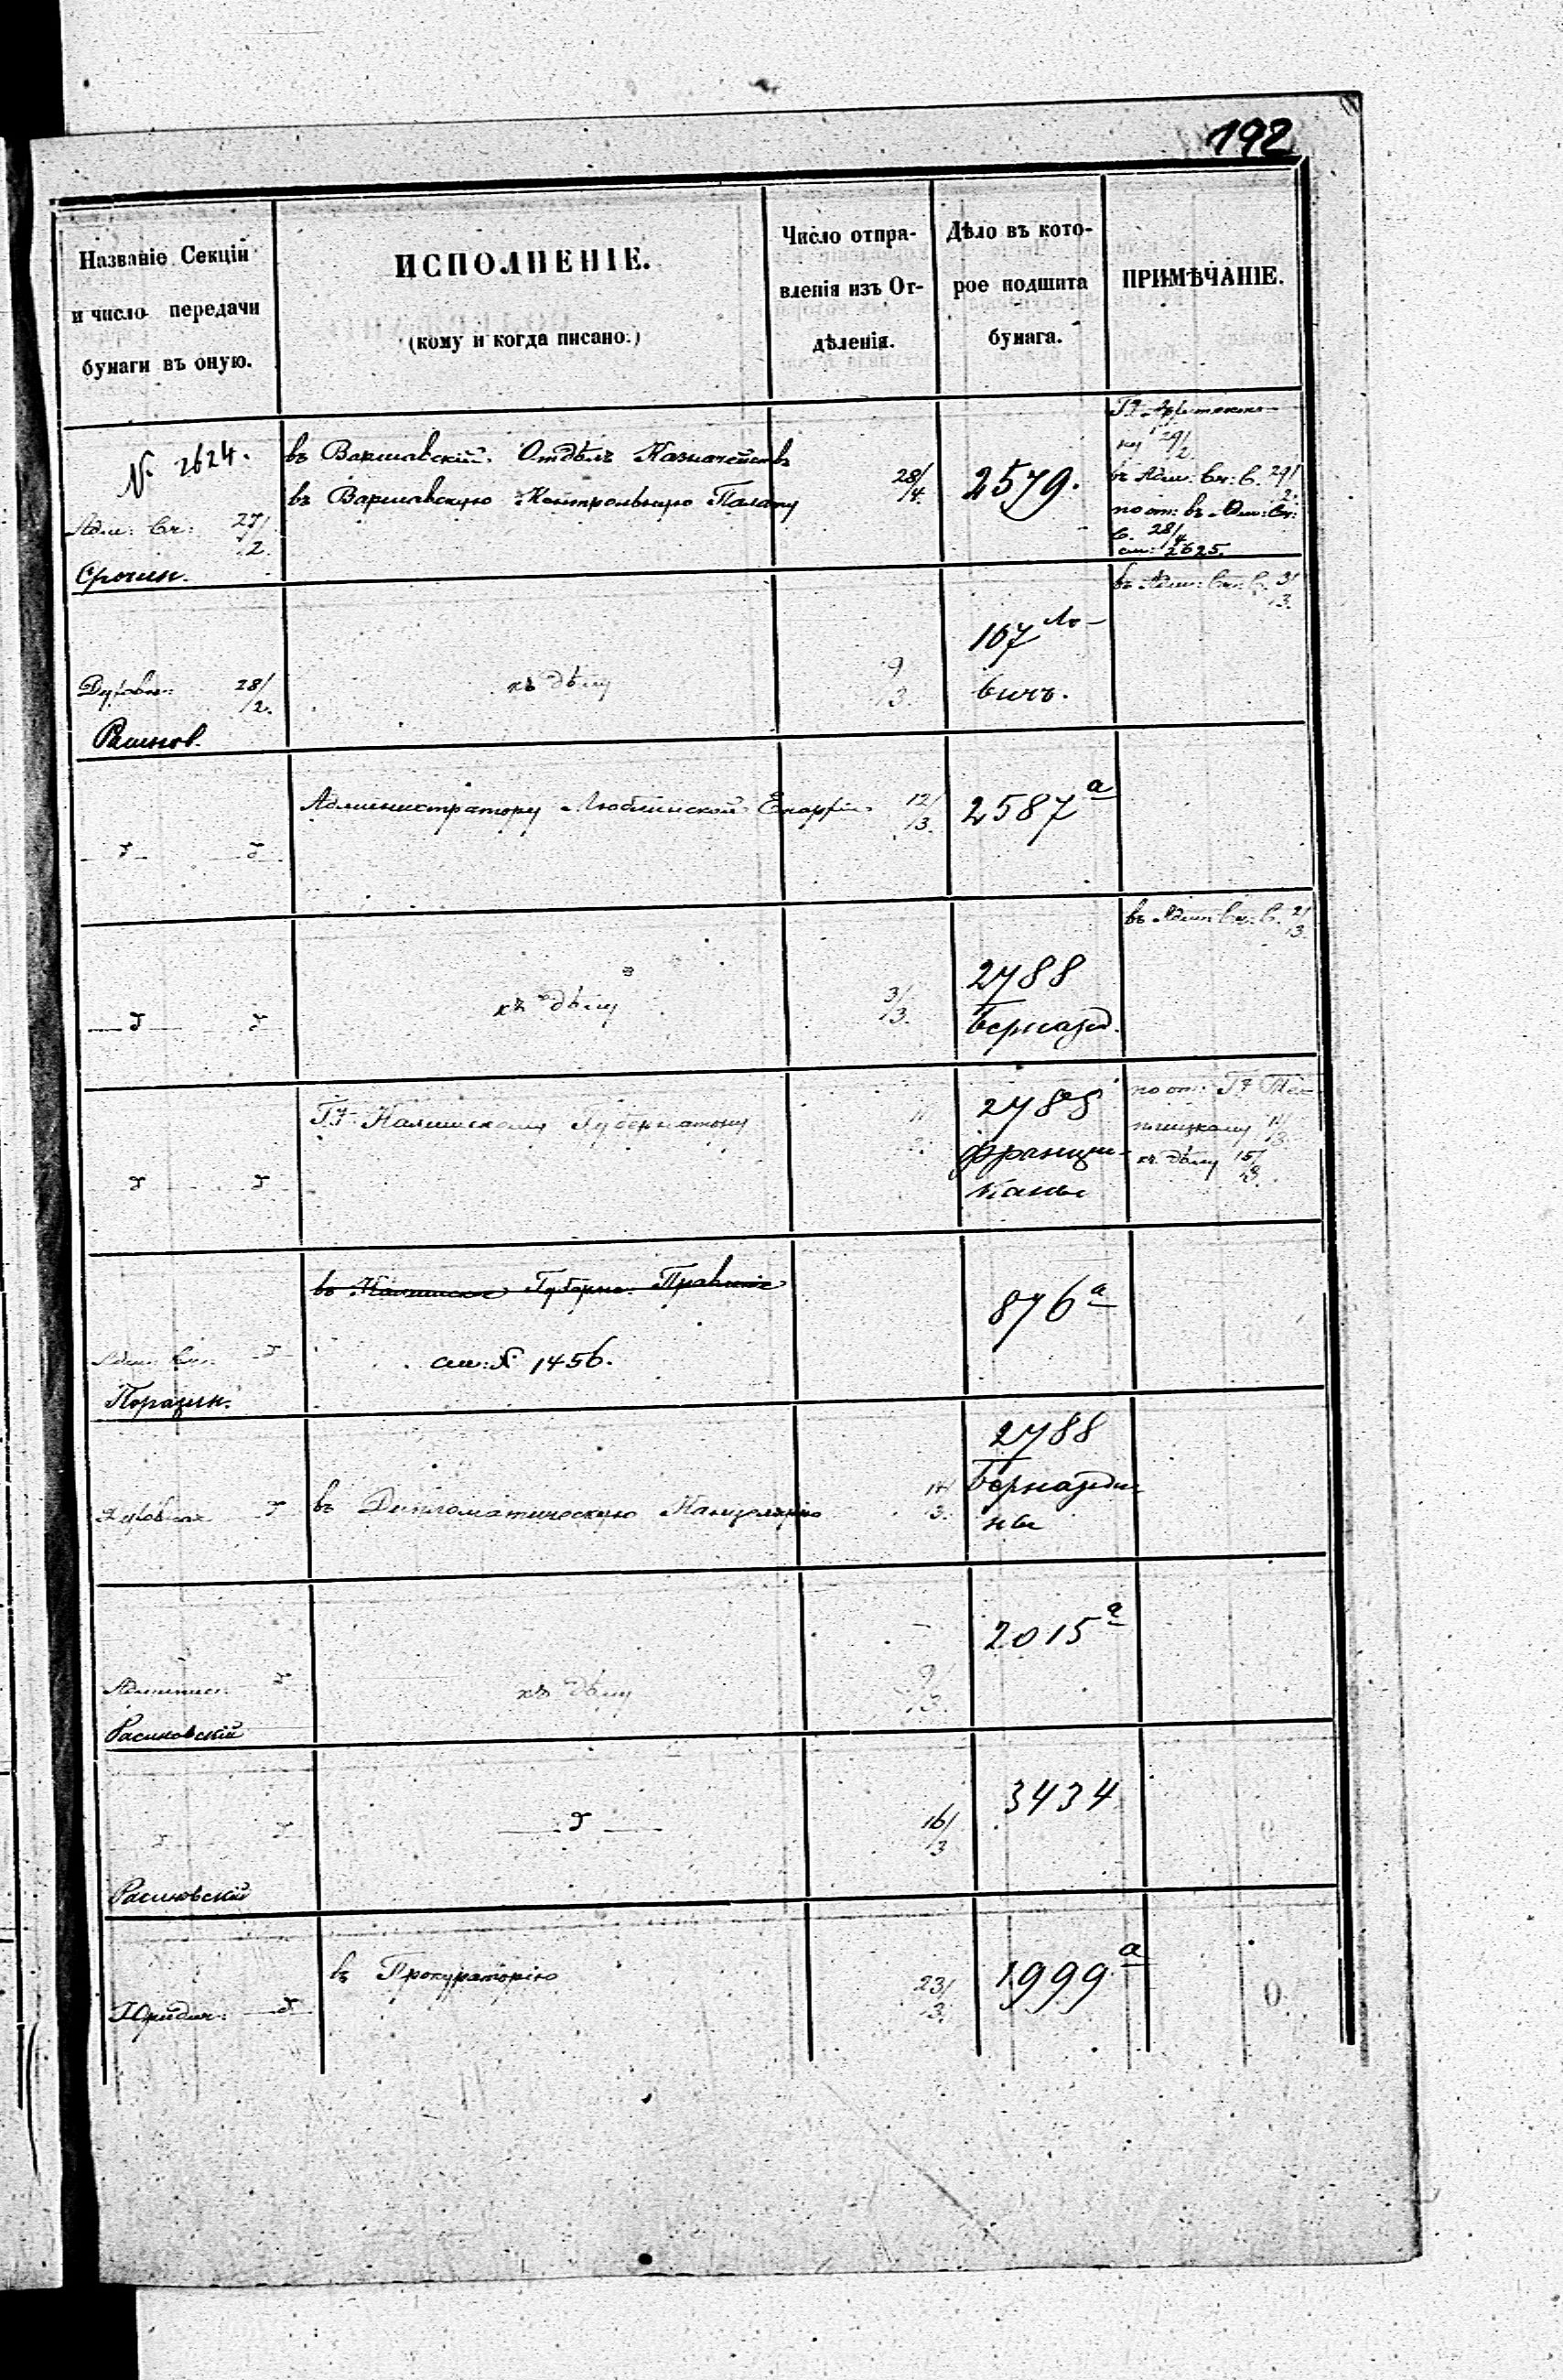 192
Названіе Секціи
и число передачи
бумаги въ оную.
ИСПОЛНЕНІЕ.
(кому и когда писано.)
Число отпра-
вленія изъ От-
дѣленія.
Дѣло въ кото-
рое подшита
бумага.
ПРИМѢЧАНІЕ.
№ 2624.
Адм: Сч: 27/2.
Срочин.
въ Варшавскій Отдѣлъ Казначействъ
въ Варшавскую Контрольную Палату
28/4.
2579.
29/2.
въ Адм: Сч: С. 29/2.
по от: въ Адм: Сч:
С. 28/4
см: 2625.
Духовн: 28/2.
къ дѣлу
9/3.
167 Ло-
вичъ.
въ Адм: Сч: С. 3/3.
Администратору Люблинской Епархіи
12/3.
2587 а
къ дѣлу
3/3.
2788
Бернард.
въ Адм: Сч: С. 2/3.
Гну Калишскому Губернатору
11/3.
2788
Францис-
каны
по от: Гну
11/3.
къ дѣлу 15/3.
Адм: Сч:
въ Калишское Губерн. Правленіе
см: № 1456.
876 а
Духовная
въ Дипломатическую Канцелярію
14/3.
2788
Бернарди-
ны
Админист.
Расиновскій
къ дѣлу
9/3.
2015 а
Расиновскій
16/3
3434
Юридич:
въ Прокураторію
23/3.
1999 а